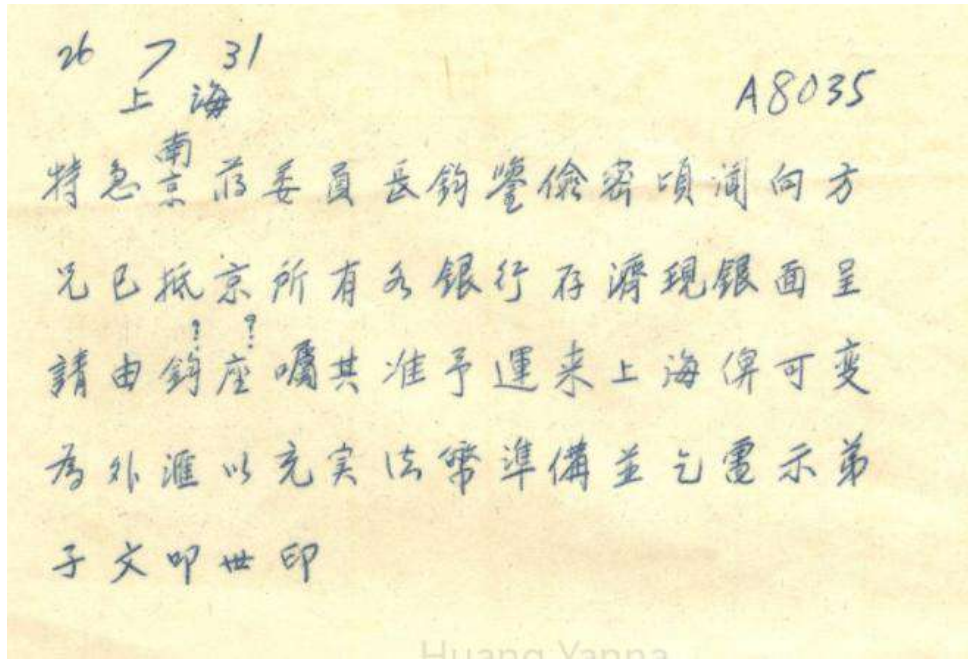 26 7 31
上海
A8035
特急南京蔣委員長鈞鑒儉密頃闻向方
兄已抵京所有各銀行存濟現銀面呈
? ?
請由鈞座囑其准予運来上海俾可变
為外滙以充实法幣準備並乞電示弟
子文叩世印
Huang Yanna